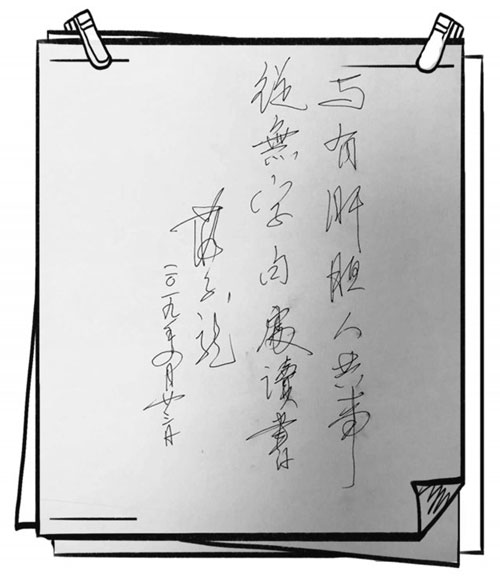 与有肝胆人共事
從無字句處讀書
蔣子龍
二〇一九年四月廿二日